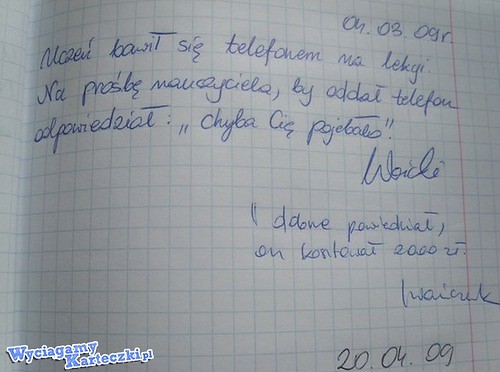 04.03.09r.
Uczeń bawił się telefonem na lekcji
Na prośbę nauczyciela, by oddał telefon
odpowiedział: „Chyba Cię pojebało"!
powiedział,
on kosztował 2000 zł.
20.04.09
Wyciągamy
Karteczki.pl